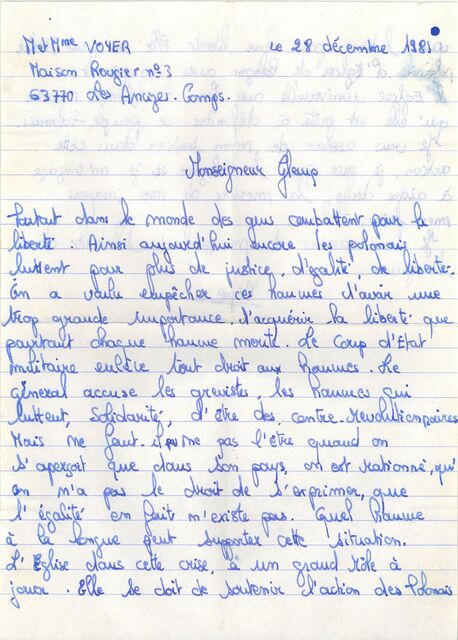 M et Mme VOYER le 28 décembre 1981
Maison Rougier n°3
63770 Les Ancizes. Comps.
Monseigneur Glemp
Partout dans le monde des gens combattent pour la
liberté. Ainsi aujourd'hui encore les polonais
luttent pour plus de justice, d'égalité, de liberté.
On a voulu empêcher ces hommes d'avoir une
trop grande importance. d'acquérir la liberté que
pourtant chaque homme merite. Le Coup d'Etat
militaire enlève tout droit aux hommes. Le
général accuse les grevistes, les hommes qui
luttent, Solidarité, d'être des contre-révolutionnaires
Mais ne faut-il pas l'être quand on
s'aperçoit que dans son pays, on est rationné, qu'
on n'a pas le droit de s'exprimer, que
l'égalité en fait n'existe pas. Quel homme
à la longue peut supporter cette situation.
L'Eglise dans cette crise, à un grand rôle à
jouer. Elle se doit de soutenir l'action des Polonais